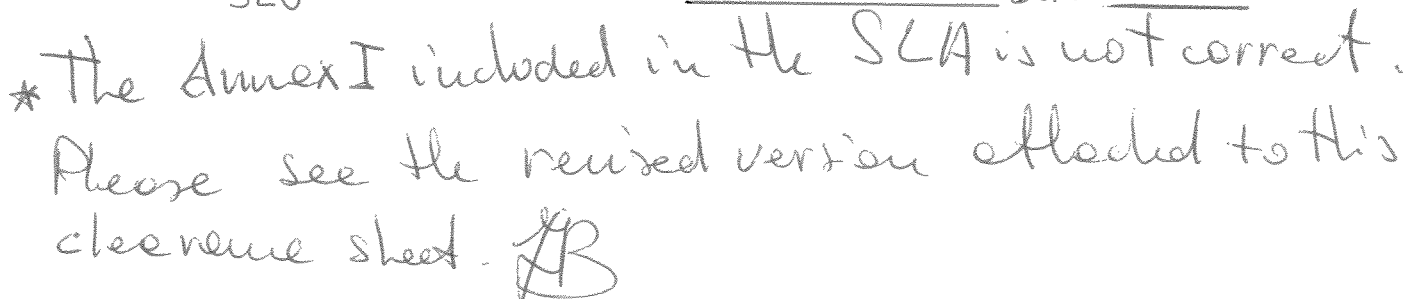 * The Annex I included in the SLA is not correct.
Please see the revised version attached to this
clearance sheet.